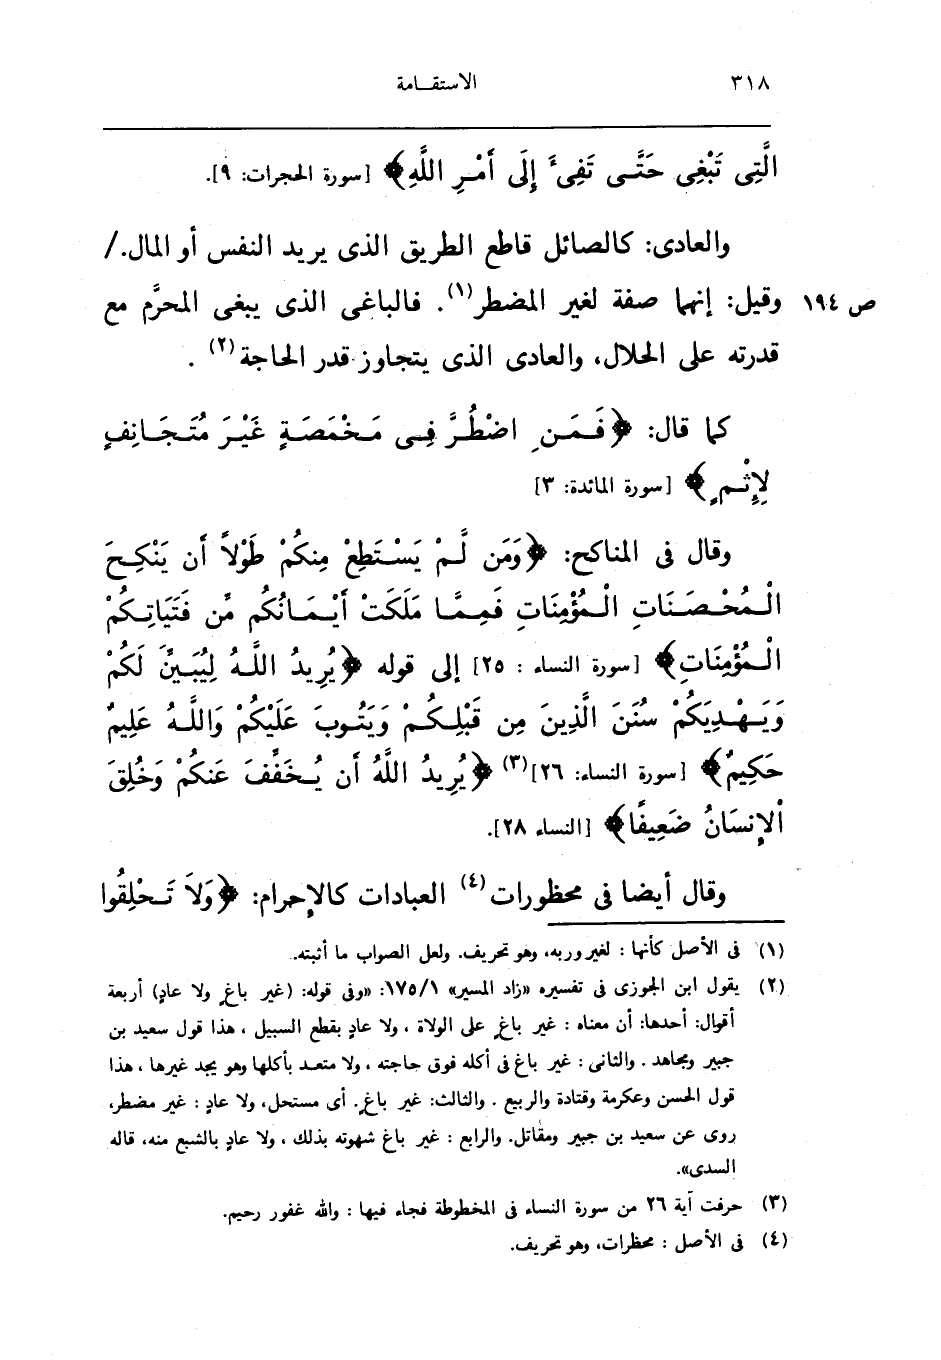 ٣١٨
الاستقـامة
الَّتِى تَبْغِى حَتَّـى تَفِىءَ إِلَى أَمْرِ اللَّهِ﴾ [سورة الحجرات: ٩].
والعادى: كالصائل قاطع الطريق الذى يريد النفس أو المال./
ص ١٩٤ وقيل: إنهما صفة لغير المضطر(١). فالباغى الذى يبغى المحرَّم مع
قدرته على الحلال، والعادى الذى يتجاوز قدر الحاجة(٢).
كما قال: ﴿فَـمَـنِ اضْطُـرَّ فِـى مَـخْمَصَـةٍ غَيْـرَ مُتَـجَـانِـفٍ
لِإِثْـمٍ﴾ [سورة المائدة: ٣]
وقال فى المناكح: ﴿وَمَن لَّـمْ يَسْـتَطِعْ مِنكُمْ طَوْلاً أَن يَنْكِـحَ
الْـمُـحْـصَـنَـاتِ الْـمُؤْمِنَـاتِ فَمِـمَّـا مَلَكَتْ أَيْـمَـانُكُم مِّن فَتَيَاتِـكُمْ
الْـمُؤْمِنَاتِ﴾ [سورة النساء : ٢٥] إلى قوله ﴿يُرِيدُ اللَّـهُ لِيُبَيِّنَ لَكُمْ
وَيَـهْـدِيَكُمْ سُنَنَ الَّذِينَ مِن قَبْلِـكُـمْ وَيَتُـوبَ عَلَيْكُمْ وَاللَّـهُ عَلِيمٌ
حَكِيمٌ﴾ [سورة النساء: ٢٦](٣) ﴿يُرِيدُ اللَّهُ أَن يُـخَفِّفَ عَنكُمْ وَخُلِقَ
الْإِنسَانُ ضَعِيفًا﴾ [النساء ٢٨].
وقال أيضا فى محظورات(٤) العبادات كالإحرام: ﴿وَلاَ تَـحْلِقُوا
(١) فى الأصل كأنها : لغير وربه، وهو تحريف. ولعل الصواب ما أثبته.
(٢) يقول ابن الجوزى فى تفسيره «زاد المسير» ١٧٥/١: «وفى قوله: (غير باغٍ ولا عادٍ) أربعة
أقوال: أحدها: أن معناه : غير باغٍ على الولاة ، ولا عادٍ بقطع السبيل ، هذا قول سعيد بن
جبير ومجاهد . والثانى : غير باغ فى أكله فوق حاجته ، ولا متعـد بأكلها وهو يجد غيرها ، هذا
قول الحسن وعكرمة وقتادة والربيع . والثالث: غير باغٍ. أى مستحل، ولا عادٍ : غير مضطر،
روى عن سعيد بن جبير ومقاتل. والرابع : غير باغ شهوته بذلك ، ولا عادٍ بالشبع منه، قاله
السدى».
(٣) حرفت آية ٢٦ من سورة النساء فى المخطوطة فجاء فيها : والله غفور رحيم.
(٤) فى الأصل : محظرات، وهو تحريف.